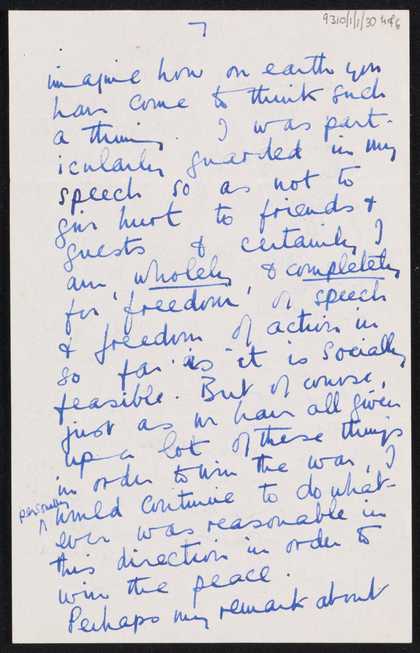 7
9310/1/1/30 4of6
imagine how on earth you
have come to think such
a thing. I was part-
icularly guarded in my
speech so as not to
give hurt to friends &
guests & certainly I
am wholely & completely
for 'freedom' of speech
& freedom of action in
so far as it is socially
feasible. But of course,
just as we have all given
up a lot of these things
in order to win the war, I
personally would continue to do what-
ever was reasonable in
this direction in order to
win the peace.
Perhaps my remark about